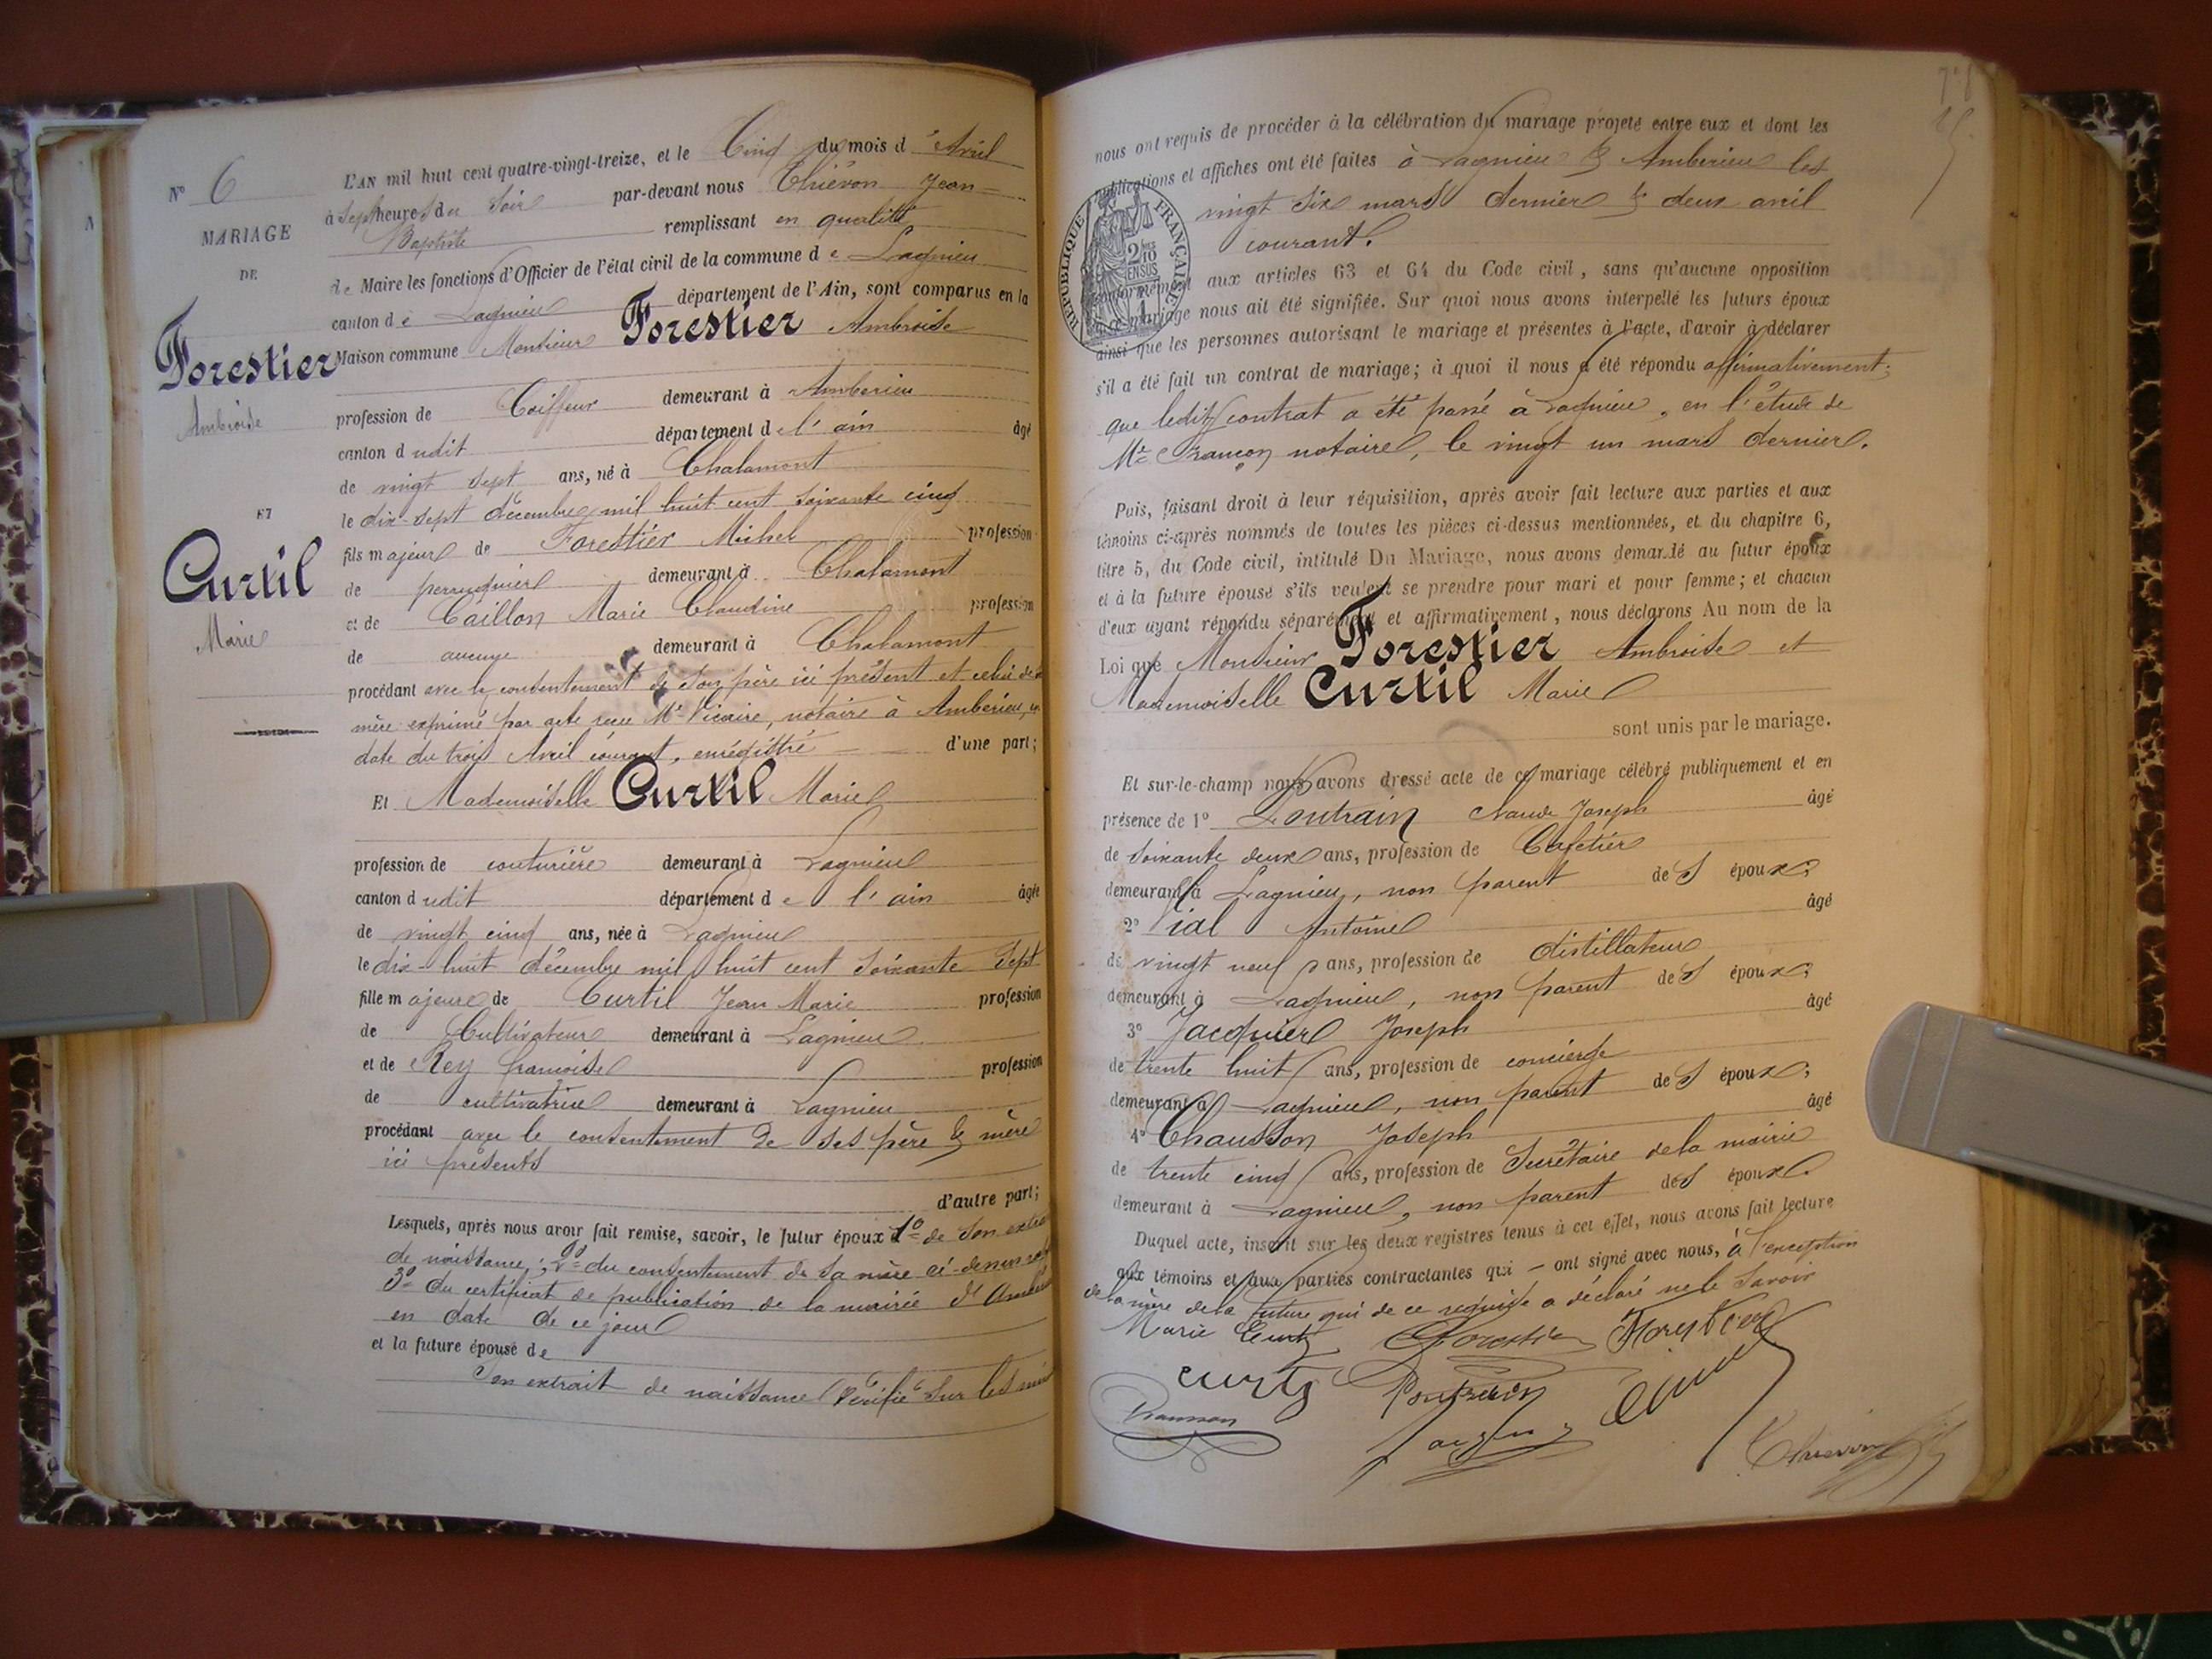 N° 6
MARIAGE
DE
Forestier
Ambroise
ET
Curtil
Marie
L'AN mil huit cent quatre-vingt-treize, et le Cinq du mois d'Avril
à Sept heures du Soir par-devant nous Thiévon Jean
Baptiste remplissant en qualité
de Maire les fonctions d'Officier de l'état civil de la commune de Lagnieu
canton de Lagnieu département de l'Ain, sont comparus en la
Maison commune Monsieur Forestier Ambroise
profession de Coiffeur demeurant à Amberieu
canton dudit département de l'ain âgé
de vingt sept ans, né à Chalamont
le dix-sept décembre mil huit cent soixante cinq
fils majeur de Forestier Michel profession
de perruquier demeurant à Chalamont
et de Caillon Marie Claudine profession
de aucune demeurant à Chalamont
procédant avec le consentement de son père ici présent et celui de sa
mère exprimé par acte reçu Me Vicaire, notaire à Amberieu, en
date du trois Avril courant, enrégistré d'une part;
Et Mademoiselle Curtil Marie
profession de couturière demeurant à Lagnieu
canton dudit département de l'ain âgée
de vingt cinq ans, née à Lagnieu
le dix-huit décembre mil huit cent soixante Sept
fille majeure de Curtil Jean Marie profession
de Cultivateur demeurant à Lagnieu
et de Rey francoise profession
de cultivatrice demeurant à Lagnieu
procédant avec le consentement de ses père & mère
ici présents
d'autre part;
Lesquels, après nous avoir fait remise, savoir, le futur époux 1° de son extrait
de naissance; 2° du consentement de sa mère ci-dessus
3° du certificat de publication de la mairie d'
en date de ce jour
et la future épouse de
son extrait de naissance vérifié sur les
nous ont requis de procéder à la célébration du mariage projeté entre eux et dont les
publications et affiches ont été faites à Lagnieu & Amberieu les
vingt six mars dernier & deux avril
courant.
RÉPUBLIQUE FRANÇAISE
2/10 EN SUS
conformément aux articles 63 et 64 du Code civil, sans qu'aucune opposition
à ce mariage nous ait été signifiée. Sur quoi nous avons interpellé les futurs époux
ainsi que les personnes autorisant le mariage et présentes à l'acte, d'avoir à déclarer
s'il a été fait un contrat de mariage; à quoi il nous a été répondu affirmativement;
que ledit contrat a été passé à Lagnieu, en l'étude de
Me notaire, le vingt un mars dernier.
Puis, faisant droit à leur réquisition, après avoir fait lecture aux parties et aux
témoins ci-après nommés de toutes les pièces ci-dessus mentionnées, et du chapitre 6,
titre 5, du Code civil, intitulé Du Mariage, nous avons demandé au futur époux
et à la future épouse s'ils veulent se prendre pour mari et pour femme; et chacun
d'eux ayant répondu séparément et affirmativement, nous déclarons Au nom de la
Loi que Monsieur Forestier Ambroise et
Mademoiselle Curtil Marie
sont unis par le mariage.
Et sur-le-champ nous avons dressé acte de ce mariage célébré publiquement et en
présence de 1° Claude Joseph âgé
de soixante deux ans, profession de Cafetier
demeurant à Lagnieu, non parent des époux;
2° Vial Antoine âgé
de vingt neuf ans, profession de distillateur
demeurant à Lagnieu, non parent des époux;
3° Jacquier Joseph âgé
de trente huit ans, profession de concierge
demeurant à Lagnieu, non parent des époux;
4° Chausson Joseph âgé
de trente cinq ans, profession de Secrétaire de la mairie
demeurant à Lagnieu, non parent des époux.
Duquel acte, inscrit sur les deux registres tenus à cet effet, nous avons fait lecture
aux témoins et aux parties contractantes qui ont signé avec nous, à l'exception
de la mère de la future qui de ce requise a déclaré ne le savoir
Marie Curtil Forestier Forestier
curtil
Chausson